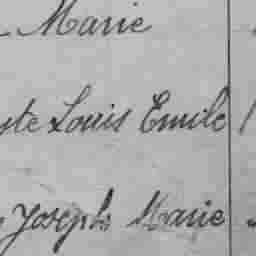 Marie
Louis Emile
Joseph Marie